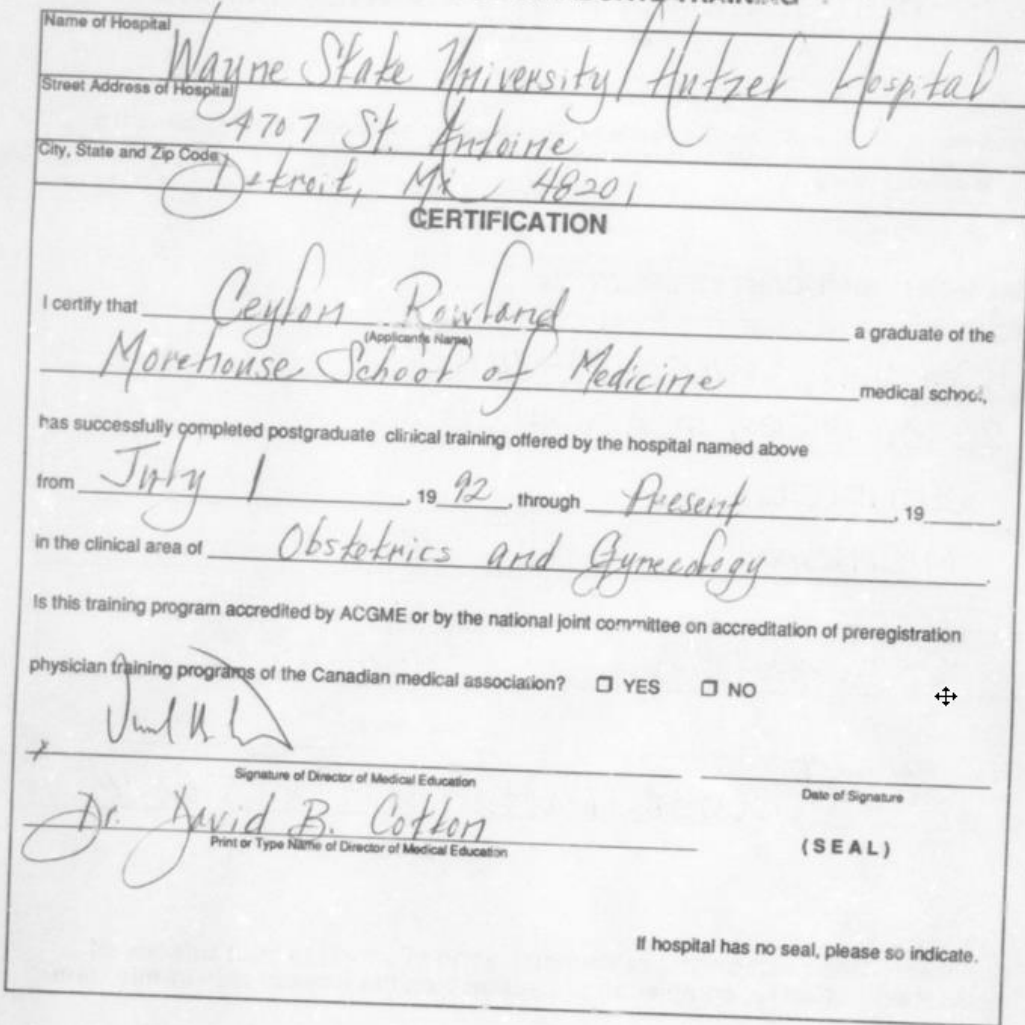 TRAINING
Name of Hospital
Wayne State University/Hutzel Hospital
Street Address of Hospital
4707 St. Antoine
City, State and Zip Code
Detroit, Mi 48201
CERTIFICATION
I certify that Ceylon Rowland a graduate of the
(Applicant's Name)
Morehouse School of Medicine medical school,
has successfully completed postgraduate clinical training offered by the hospital named above
from July 1, 19 92, through Present, 19
in the clinical area of Obstetrics and Gynecology.
Is this training program accredited by ACGME or by the national joint committee on accreditation of preregistration
physician training programs of the Canadian medical association? ☐ YES ☐ NO
Signature of Director of Medical Education
Date of Signature
Dr. David B. Cotton
Print or Type Name of Director of Medical Education
(SEAL)
If hospital has no seal, please so indicate.